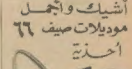 أشيك وأجمل
موديلات صيف ٦٦
أحذية